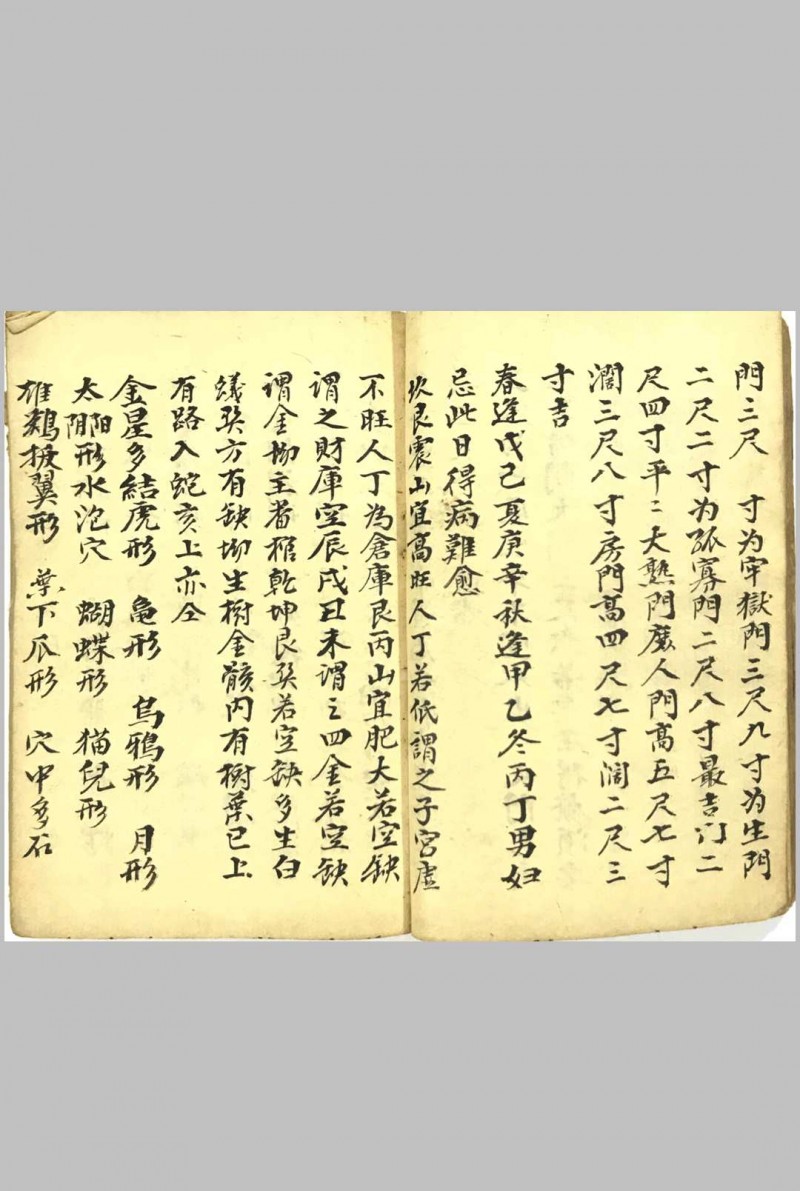 門三尺　寸为牢獄門三尺九寸为生門
二尺二寸为孤寡門二尺八寸最吉门二
尺四寸平二大熟門廢人門高五尺七寸
濶三尺八寸房門高四尺七寸濶二尺三
寸吉
春逢戊己夏庚辛秋逢甲乙冬丙丁男妇
忌此日得病難愈
坎艮震山宜高旺人丁若低謂之子宮虛
不旺人丁為倉庫艮丙山宜肥大若空缺
謂之財庫空辰戌丑未謂之四金若空缺
謂金坳主蓄棺乾坤艮巽若空缺多生白
蟻巽方有缺坳生樹金骸內有樹葉巳上
有路入蛇亥上亦仝
金星多結虎形　亀形　烏鴉形　月形
太陽形水泡穴　蝴蝶形　猫兒形
雄鷄振翼形　葉下瓜形　穴中多石